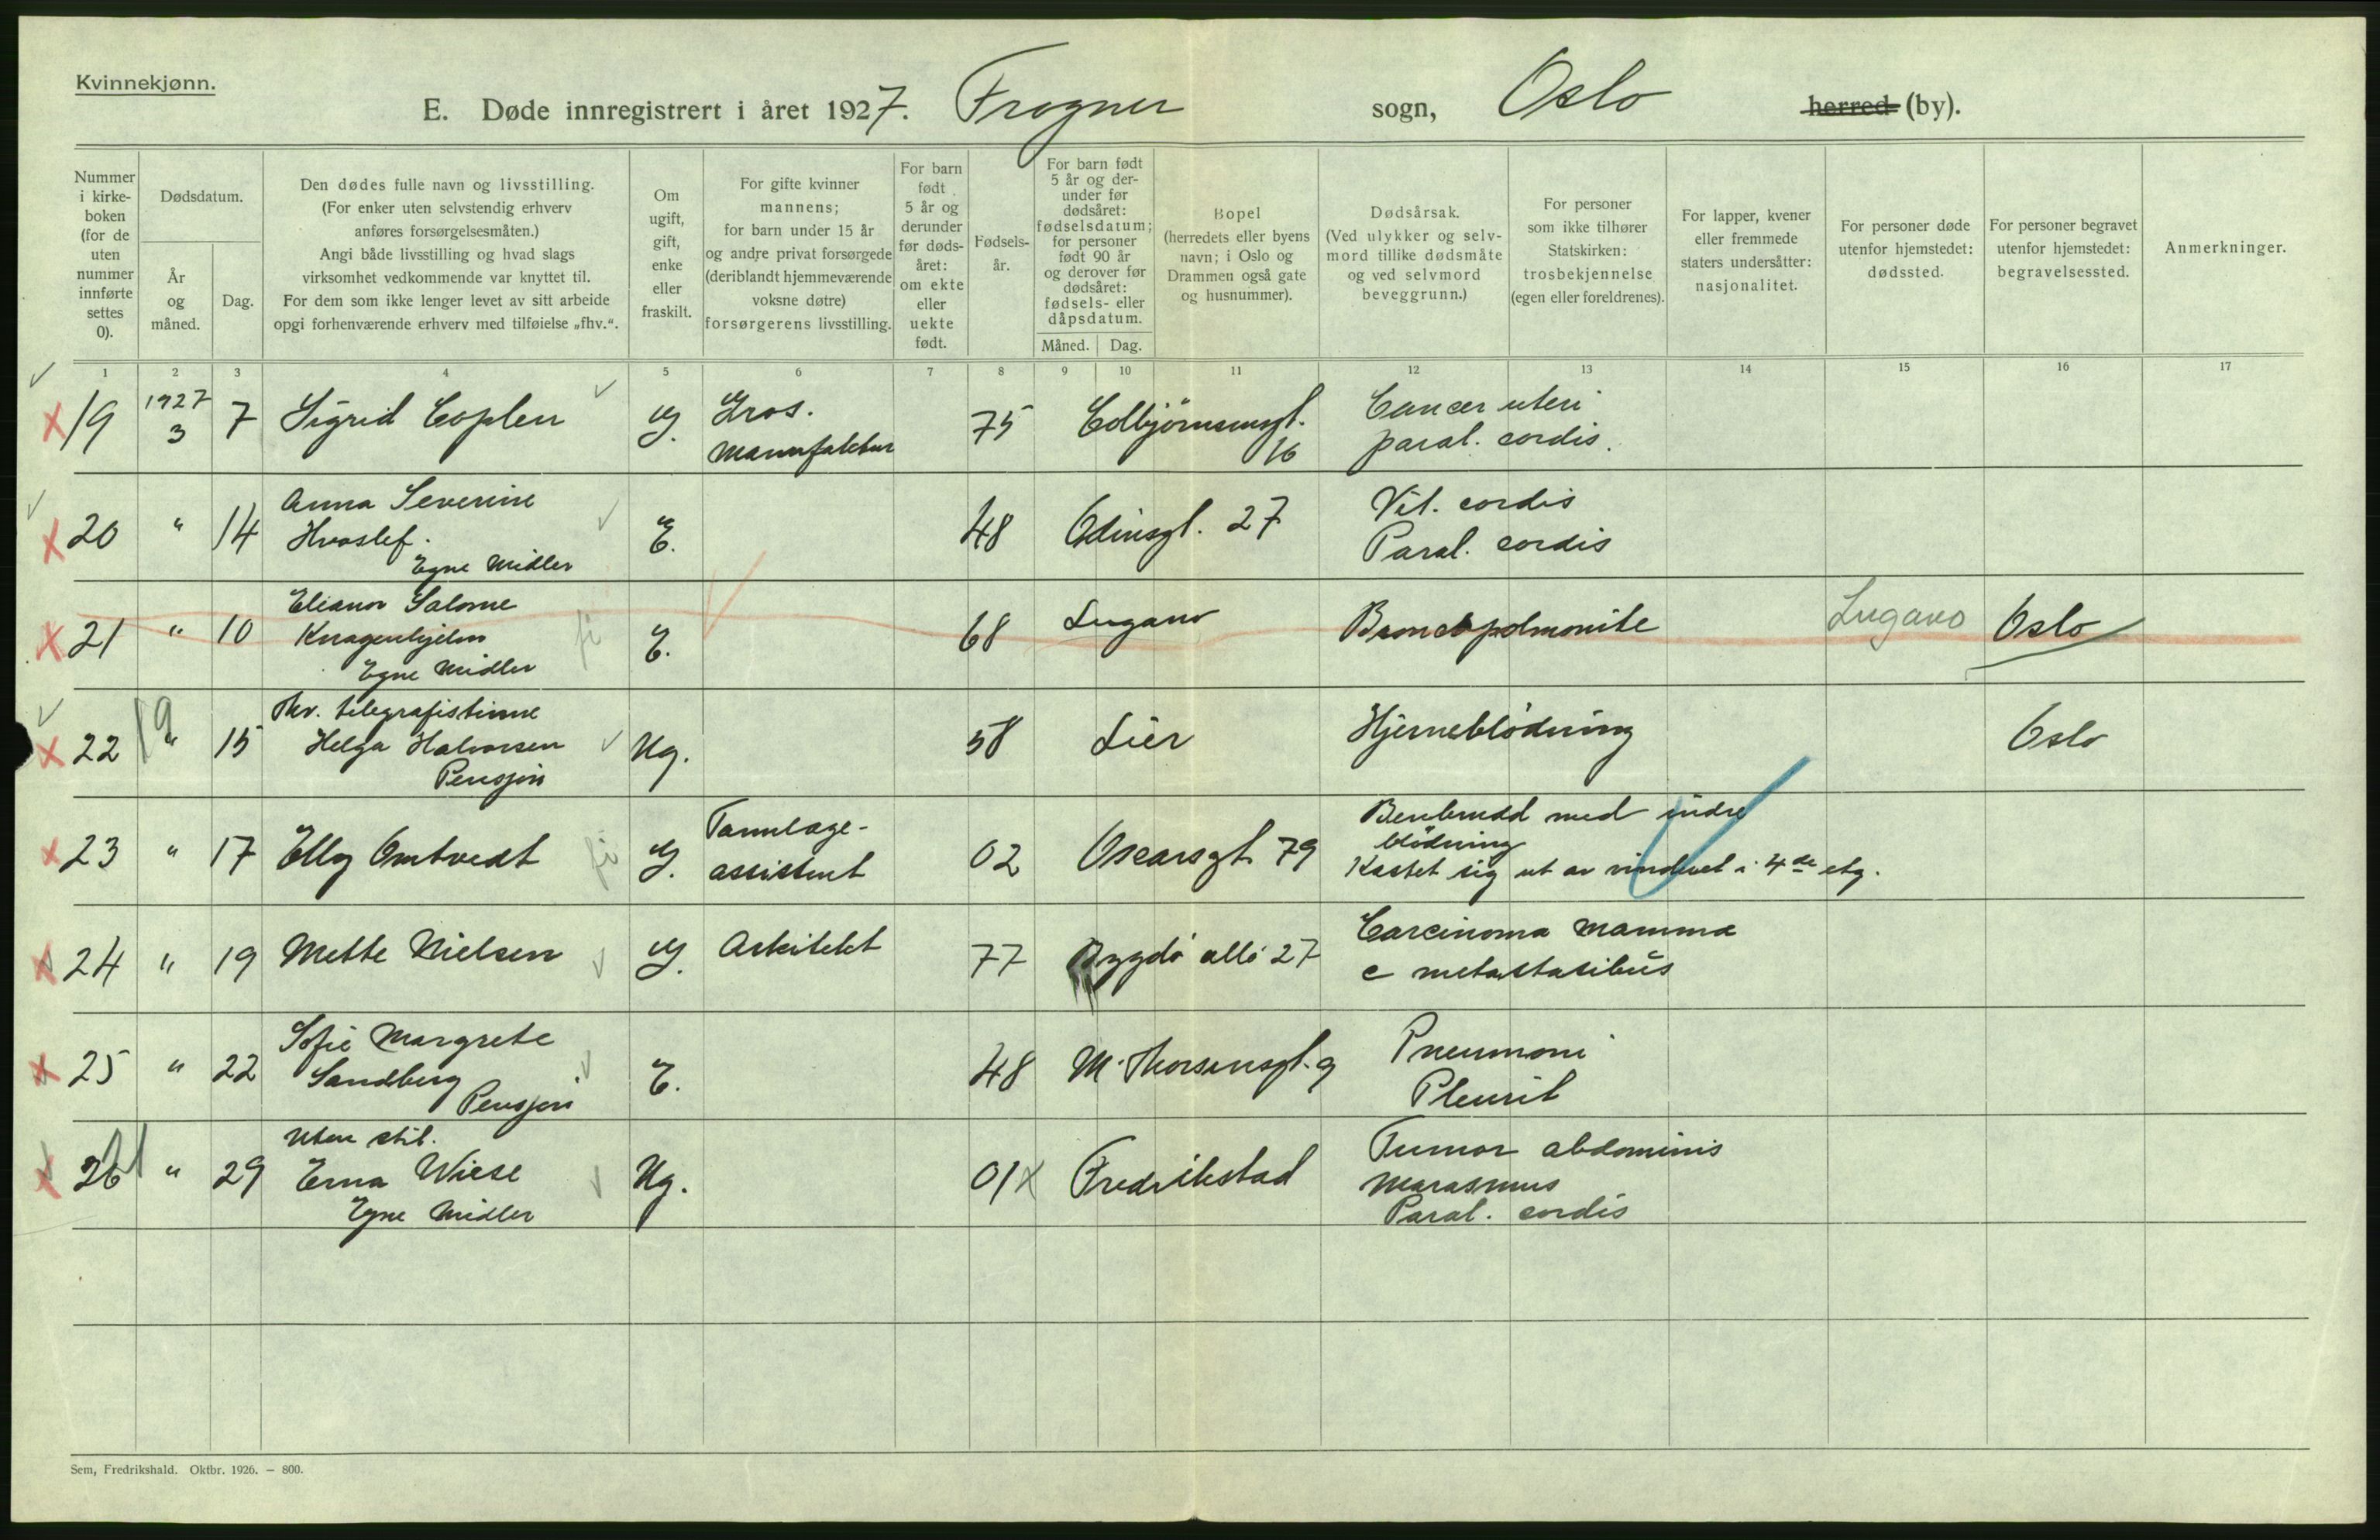 Kvinnekjønn.
E. Døde innregistrert i året 1927. Frogner sogn, Oslo herred (by).
Nummer i kirke-boken (for de uten nummer innførte settes 0).
Dødsdatum.
År og måned.
Dag.
Den dødes fulle navn og livsstilling.
(For enker uten selvstendig erhverv
anføres forsørgelsesmåten.)
Angi både livsstilling og hvad slags
virksomhet vedkommende var knyttet til.
For dem som ikke lenger levet av sitt arbeide
opgi forhenværende erhverv med tilføielse „fhv.“.
Om ugift, gift, enke eller fraskilt.
For gifte kvinner
mannens;
for barn under 15 år
og andre privat forsørgede
(deriblandt hjemmeværende
voksne døtre)
forsørgerens livsstilling.
For barn født 5 år og derunder før døds-året: om ekte eller uekte født.
Fødsels-år.
For barn født
5 år og der-
under før
dødsåret:
fødselsdatum;
for personer
født 90 år
og derover før
dødsåret:
fødsels- eller
dåpsdatum.
Måned. Dag.
Bopel
(herredets eller byens
navn; i Oslo og
Drammen også gate
og husnummer).
Dødsårsak.
(Ved ulykker og selv-
mord tillike dødsmåte
og ved selvmord
beveggrunn.)
For personer
som ikke tilhører
Statskirken:
trosbekjennelse
(egen eller foreldrenes).
For lapper, kvener
eller fremmede
staters undersåtter:
nasjonalitet.
For personer døde
utenfor hjemstedet:
dødssted.
For personer begravet
utenfor hjemstedet:
begravelsessted.
Anmerkninger.
1 2 3 4 5 6 7 8 9 10 11 12 13 14 15 16 17
19 1927 3 7 Sigrid Coplen g. Gros. Manufaktur 75 Colbjörnsensgt. 16 Cancer uteri
paral. cordis.
20 " 14 Anna Severine
Hvoslef.
Egne Midler E. 48 Odinsgt. 27 Vit. cordis
Paral. cordis
21 " 10 Eleanor Salome
Knagenhjelm
Egne Midler E. 68 Lugano Broncopolmonite Lugano Oslo
22 " 15 Fhv. telegrafistinne
Helga Halvorsen
Pensjon Ug. 58 Lier Hjerneblödning Oslo
23 " 17 Elly Omtvedt g. Tannlæge-
assistent 02 Oscarsgt 79 Benbrudd med indre
blödning
Kastet sig ut av vinduet i 4de etg.
24 " 19 Mette Nielsen g. Arkitekt 77 Bygdö allé 27 Carcinoma mamma
c metastasibus
25 " 22 Sofie Margrete
Sandberg
Pensjon E. 48 M. Thorsensgt. 9 Pneumoni
Pleurit
26 " 29 Uten stil.
Erna Wiese
Egne Midler Ug. 01 Fredrikstad Tumor abdominis
Marasmus
Paral. cordis
Sem, Fredrikshald. Oktbr. 1926. – 800.